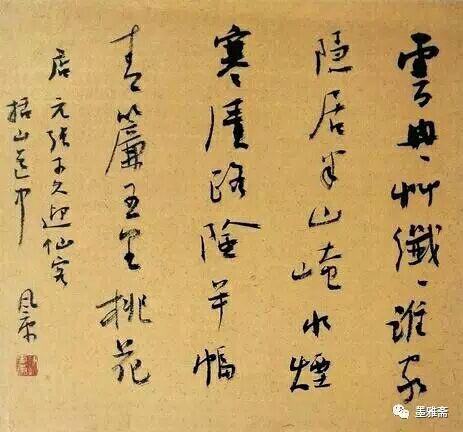 雲冉〻艸纖〻誰家
隱居半山崦水煙
寒溪路險半幅
青簾五里桃花
店 元張可久迎仙客
括山道中
墨雅斋